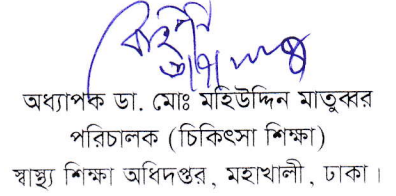 অধ্যাপক ডা. মোঃ মহিউদ্দিন মাতুব্বর
পরিচালক (চিকিৎসা শিক্ষা)
স্বাস্থ্য শিক্ষা অধিদপ্তর, মহাখালী, ঢাকা।